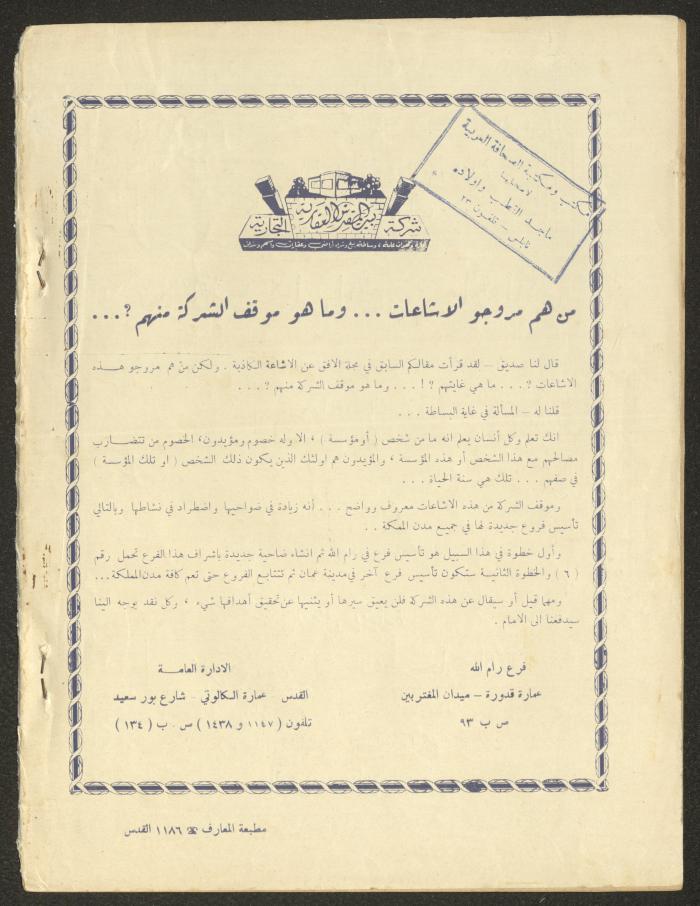 مكتب ومكتبة الصحافة العربية
لاصحابها
ماجد القطب واولاده
نابلس - تلفون ٢٣
شركة بيت المقدس العقارية التجارية
من هم مروجو الاشاعات ... وما هو موقف الشركة منهم ؟ ...
قال لنا صديق – لقد قرأت مقالكم السابق في مجلة الافق عن الاشاعة الكاذبة . ولكن من هم مروجو هذه
الاشاعات ؟ ... ما هي غايتهم ؟ ! ... وما هو موقف الشركة منهم ؟ ...
قلنا له – المسألة في غاية البساطة ...
انك تعلم وكل أنسان يعلم انه ما من شخص ( أومؤسسة ) ، الا وله خصوم ومؤيدون، الخصوم من تتضارب
مصالحهم مع هذا الشخص أو هذه المؤسسة ، والمؤيدون هم اولئك الذين يكون ذلك الشخص ( او تلك المؤسسة )
في صفهم ... تلك هي سنة الحياة ...
وموقف الشركة من هذه الاشاعات معروف وواضح ... أنه زيادة في ضواحيها واضطراد في نشاطها وبالتالي
تأسيس فروع جديدة لها في جميع مدن المملكة ..
وأول خطوة في هذا السبيل هو تأسيس فرع في رام الله ثم انشاء ضاحية جديدة باشراف هذا الفرع تحمل رقم
( ٦ ) والخطوة الثانية ستكون تأسيس فرع آخر في مدينة عمان ثم تتتابع الفروع حتى تعم كافة مدن المملكة ...
ومهما قيل أو سيقال عن هذه الشركة فلن يعيق سيرها أو يثنيها عن تحقيق أهدافها شيء ، وكل نقد يوجه الينا
سيدفعنا الى الامام .
فرع رام الله
عمارة قدورة – ميدان المغتربين
ص ب ٩٣
الادارة العامة
القدس عمارة الكالوتي - شارع بور سعيد
تلفون ( ١١٤٧ و ١٤٣٨ ) ص . ب ( ١٣٤ )
مطبعة المعارف ☎ ١١٨٦ القدس